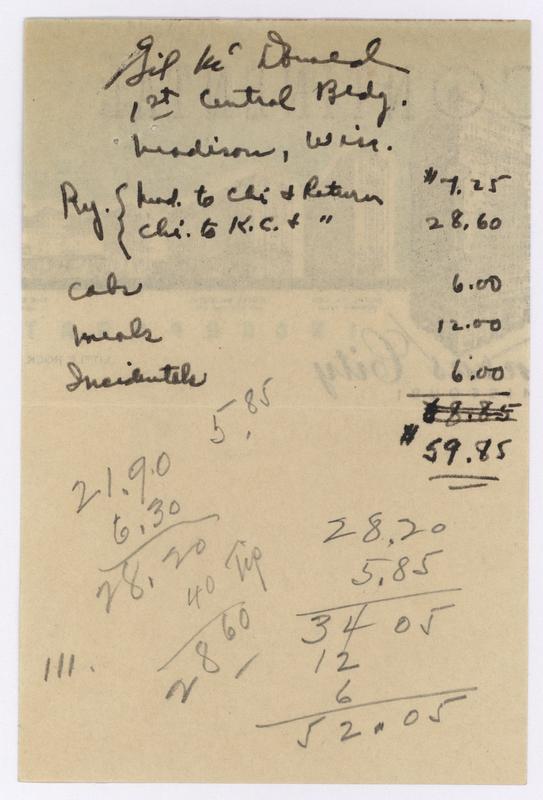 Gil Mc Donald
1st Central Bldg.
Madison, Wisc.
Ry. { Mad. to Chi & Return $7.25
Chi. to K.C. & " 28.60
Cabs 6.00
Meals 12.00
Incidentals 6.00
58.85
$59.85
5.85
21.90
6.30
28.20
40 Tip
28.60
28.20
5.85
34 05
12
6
52.05
111.